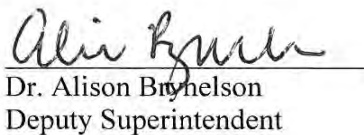 Dr. Alison Brynelson
Deputy Superintendent